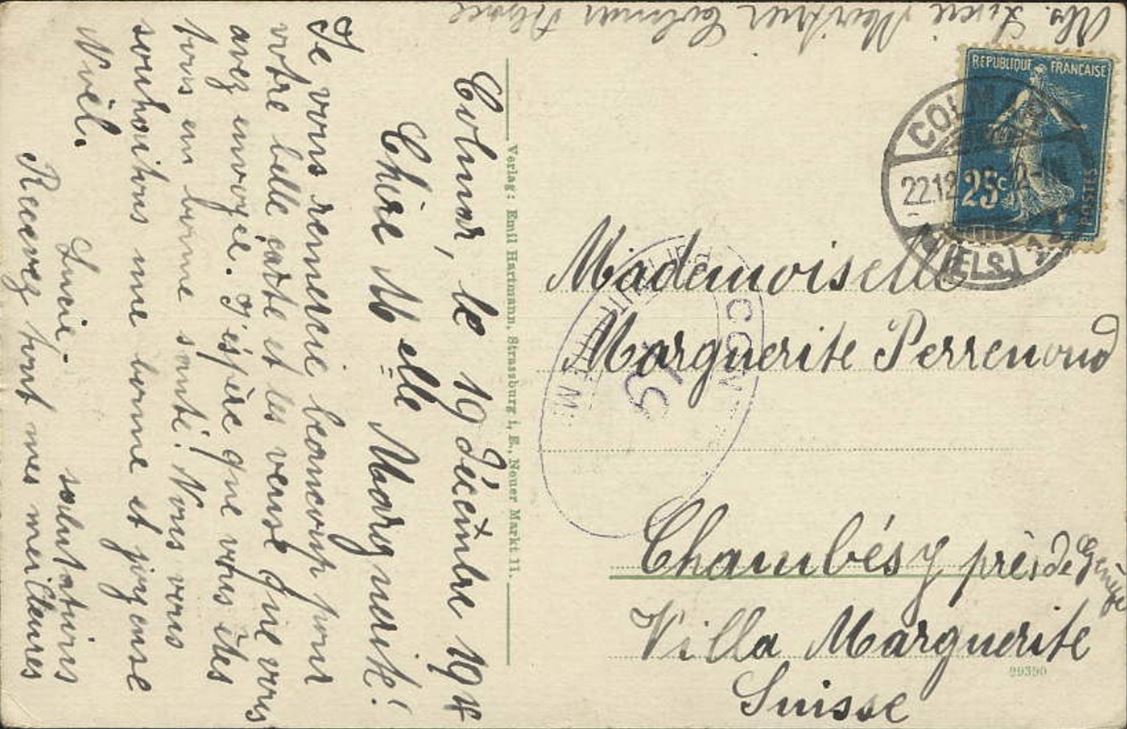 Abs. Lucie Colmar Alsace
REPUBLIQUE FRANÇAISE
25c
POSTES
COLMAR
22.12
(ELS.)
Mademoiselle
Marguerite Perrenoud
Chambésy près de Genève
Villa Marguerite
Suisse
29390
Verlag: Emil Hartmann, Strassburg i. E., Neuer Markt 11.
Colmar, le 19 décembre 19
Chère Melle Marguerite!
Je vous remercie beaucoup pour
votre belle carte et les veux que vous
avez envoyée. J'éspère que vous êtes
tous en bonne santé! Nous vous
souhaitons une bonne et joyeuse
Noël.
Recevez tout mes meilleures
salutations
Lucie.